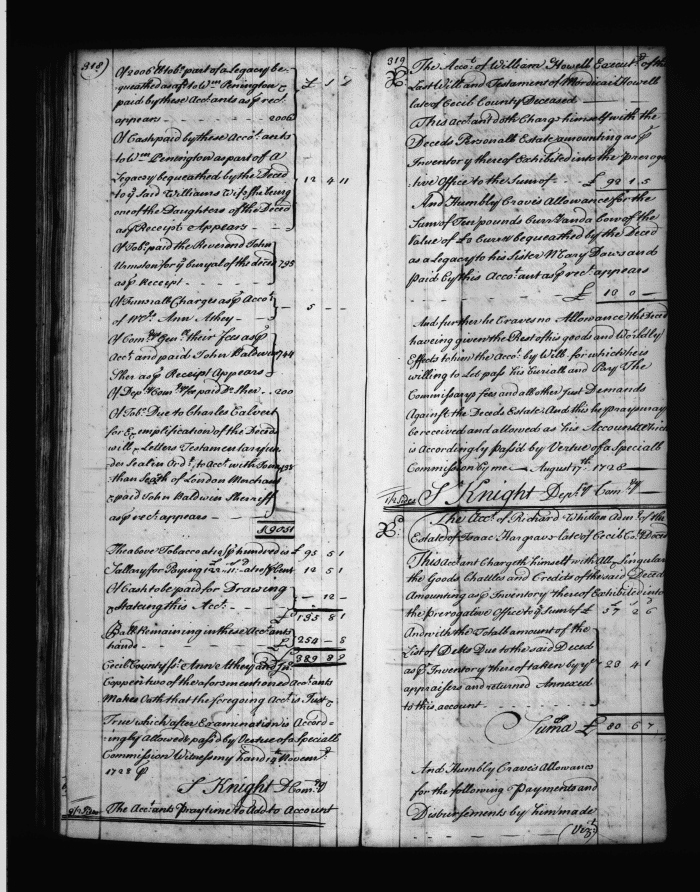 318)
Of 2006 lb tobo part of a Legacy be-
queathed as aft to Wm Penington
paid by these Accotants as p rect
appears - - - - - 2006
£ 1 2
Of Cash paid by these Accot. ants
to Wm Penington as part of a
Legacy bequeathed by the Deced
to ye Said Williams Wife She being
one of the Daughters of the Deced
as p Receipt Appears -
12 4 11
Of Tobo. paid the Reverend John
Urmston for ye buryal of the deced 795
as p Receipt -
Of Funerall Charges as p Accot
of Wd. Ann Athey -
5 -
Of Comry Genll their fees as p
Acct and paid John Baldwin 744
Sher as p Receipt Appears
Of Depty Com ry for paid Do Sher .. 200
Of Tobo. Due to Charles Calvert
for Exemplification of the Deced
will & Letters Testamentary un
der Seal in Ordr to Acct. with
than Seath of London Merchant
& paid John Baldwin Sherriff
as p rect. appears
The above Tobacco at p hundred is £ 95 5 1
Sallary for Paying 122 . 11 . at 10 p Cent 12 5 1
Of Cash to be paid for Drawing
& Stateing this Acct.
- 12 -
£ 135 8 1
Ball. Remaining in these Accot. ants
hands - - - £ 254 - 8
£ 389 8 9
Cecil County ss. Ann Athey and Jno.
Copper two of the aforementioned Accotants
Makes Oath that the foregoing Acct. is Just &
True which after Examination is Accord-
ingly Allowed & pass'd by Vertue of a Speciall
Commission Witness my hand 14 Novemr
1728 p
S Knight D Comry
The Accot. ants Pray time to Add to Account
319
The Accot. of William Howell Executr of the
Last Will and Testament of Mordicai Howell
late of Cecil County Deceased
This Accotant doth Charg himself with the
Deceds Personall Estate amounting as p
Inventory thereof Exhibited into the Preroga
tive Office to the Sum of - £ 92 1 5
And Humbly Craves Allowance for the
Sum of Ten pounds Curr. and a Cow of the
Value of £2 Curr. bequeathed by the Deced
as a Legacy to his Sister Mary Daws and
Paid by this Accotant as p rect. appears
£ 10 0 -
And further he Craves no Allowance the Deced
having given the Rest of his goods and Worldly
Effects to him the Accot. by Will. for which he is
willing to Let pass his Buriall and Pay the
Commissarys fees and all other Just Demands
Against the Deceds Estate And this he prays may
be received and allowed as his Account Which
is Accordingly Pass'd by Vertue of a Speciall
Commission by me August 17th. 1728
S Knight Depty Comry
The Acct. of Richard Whitton Admr. of the
Estate of Isaac Hargrave late of Cecil Co. Deced
This Accotant Chargeth himself with All & Singular
the Goods Chattles and Credits of the said Deced
Amounting as p Inventory thereof Exhibited into
the Prerogative Office to ye Sum of £ 57 2 6
And with the Totall amount of the
List of Debts Due to the said Deced
as p Inventory thereof taken by ye
appraisers and returned Annexed
to this account
23 4 1
Suma £ 80 6 7
And Humbly Craves Allowance
for the following Payments and
Disbursements by him made
(Vizt.)